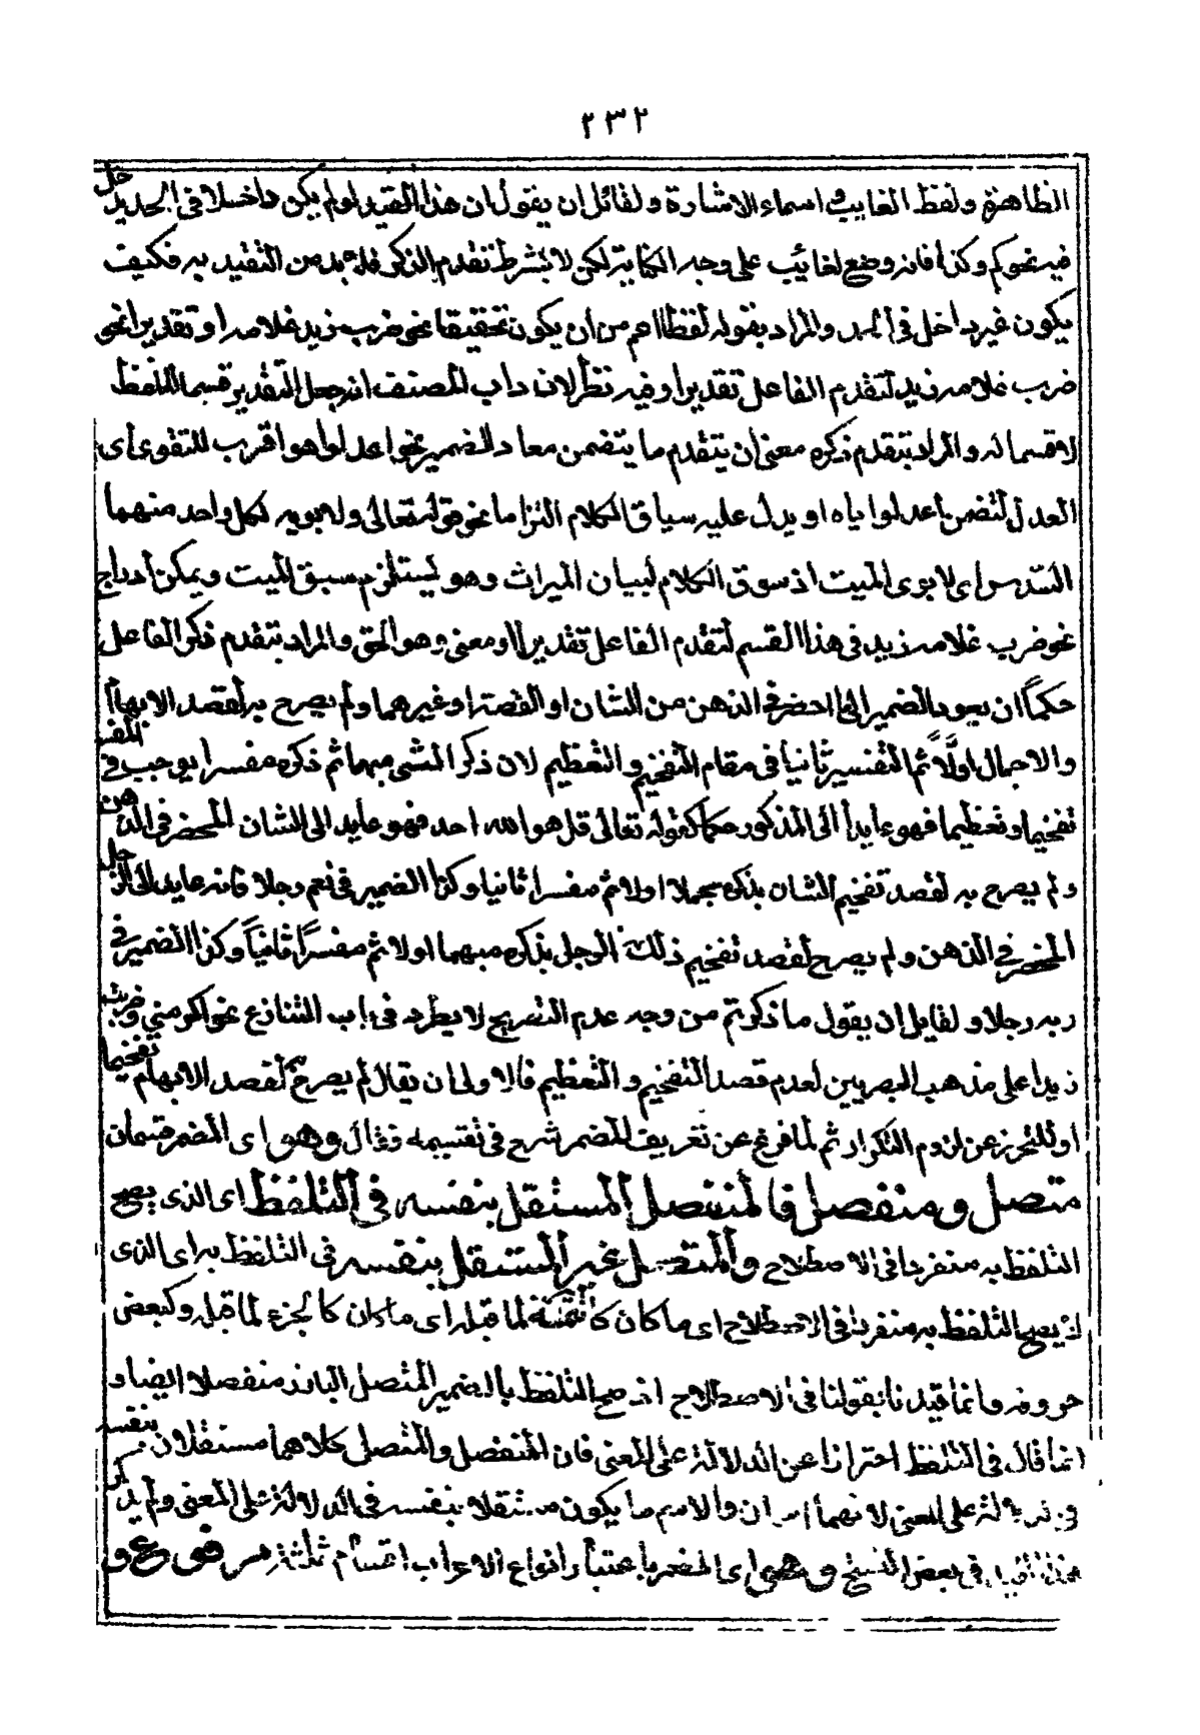 ٢٣٢
الظاهرة ولفظ الغايب واسماء الاشارة ولقائل ان يقول ان هذا القيد لو لم يكن داخلا فى الحد يدخل
فيه نحوكم وكذا فانه وضع لغائب على وجه الكناية لكن لا بشرط تقدم الذكر فلا بد من التقييد به فكيف
يكون غير داخل فى الحد والمراد بقوله لفظا اعم من ان يكون تحقيقا نحو ضرب زيد غلامه او تقديرا نحو
ضرب غلامه زيد لتقدم الفاعل تقديرا وفيه نظر لان داب المصنف انه جعل التقدير قسما للفظ
لا قسما له والمراد بتقدم ذكره معنى ان يتقدم ما يتضمن معاد الضمير نحو اعدلوا هو اقرب للتقوى أى
العدل لتضمن أعدلوا ياه او يدل عليه سياق الكلام التزاما نحو قوله تعالى ولابويه لكل واحد منهما
السدس اى لابوى الميت اذ سوق الكلام لبيان الميراث وهو يستلزم سبق الميت ويمكن أدراج
نحو ضرب غلامه زيد فى هذا القسم لتقدم الفاعل تقديرا او معنى وهو الحق والمراد بتقدم ذكر الفاعل
حكماً ان يعود الضمير الى ما احضر فى الذهن من الشان او القصة او غيرهما ولم يصرح به لقصد الابهام
والاجمال اولاً ثم التفسير ثانيا فى مقام التفخيم والتعظيم لان ذكر الشى مبهما ثم ذكره مفسرا يوجب فى النفس
تفخيما وتعظيما فهو عايد أالى المذكور حكما كقوله تعالى قل هو الله احد فهو عايد الى الشان المحضر فى الذهن
ولم يصرح به لقصد تفخيم الشان بذكره مجملا اولا ثم مفسرا ثانيا وكذا الضمير فى نعم رجلا فانه عايد الى الرجل
المحضر فى الذهن ولم يصرح لقصد تفخيم ذلك الرجل بذكره مبهما اولا ثم مفسرًا ثانياً وكذا الضمير فى
ربه رجلا ولقايل ان يقول ما ذكرتم من وجه عدم التصريح لا يطرد فى باب التنازع نحو اكرمنى وضربت
زيدا على مذهب البصريين لعدم قصد التفخيم والتعظيم فالاولى ان يقال لم يصرح ثم لقصد الابهام تفخيما
او للتحرز عن لزوم التكرار ثم لما فرغ عن تعريف المضمر شرع فى تقسيمه فقال وهو اى المضمر قسمان
متصل ومنفصل فالمنفصل المستقل بنفسه فى التلفظ اى الذى يصح
التلفظ به منفردا فى الاصطلاح والمتصل غير المستقل بنفسه فى التلفظ به اى الذى
لا يصح التلفظ به منفردا فى الاصطلاح اى ما كان كالتتمة لما قبله اى ما كان كالجزء لما قبله وكبعض
حروفه وانما قيدنا بقولنا فى الاصطلاح اذ صح التلفظ بالضمير المتصل البارز منفصلا ايضا و
انما قال فى التلفظ احترازا عن الدلالة على المعنى فان المنفصل والمتصل كلاهما مستقلان بنفسه
فى الدلالة على المعنى لانهما اسمان والاسم ما يكون مستقلا بنفسه فى الدلالة على المعنى ولم يذكر
هذا القيد فى بعض النسخ وهو اى المضمر باعتبار انواع الاعراب اقسام ثلثة مرفوع و